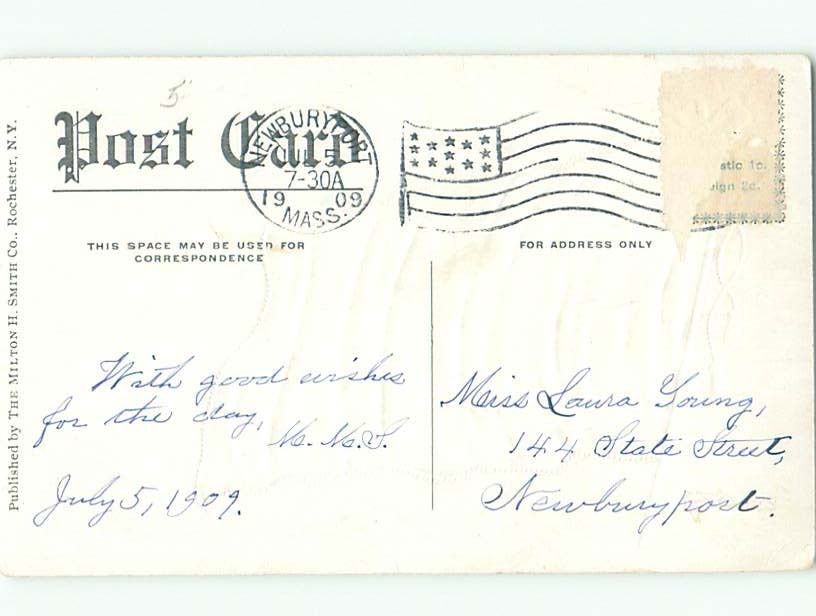 5
Post Card
NEWBURYPORT
JUL 5
7-30A
19 09
MASS.
stic 1c.
ign 2c.
THIS SPACE MAY BE USED FOR
CORRESPONDENCE
FOR ADDRESS ONLY
Published by THE MILTON H. SMITH CO., Rochester, N.Y.
With good wishes
for the day,
M. M. S.
July 5, 1909.
Miss Laura Young,
144 State Street,
Newburyport.